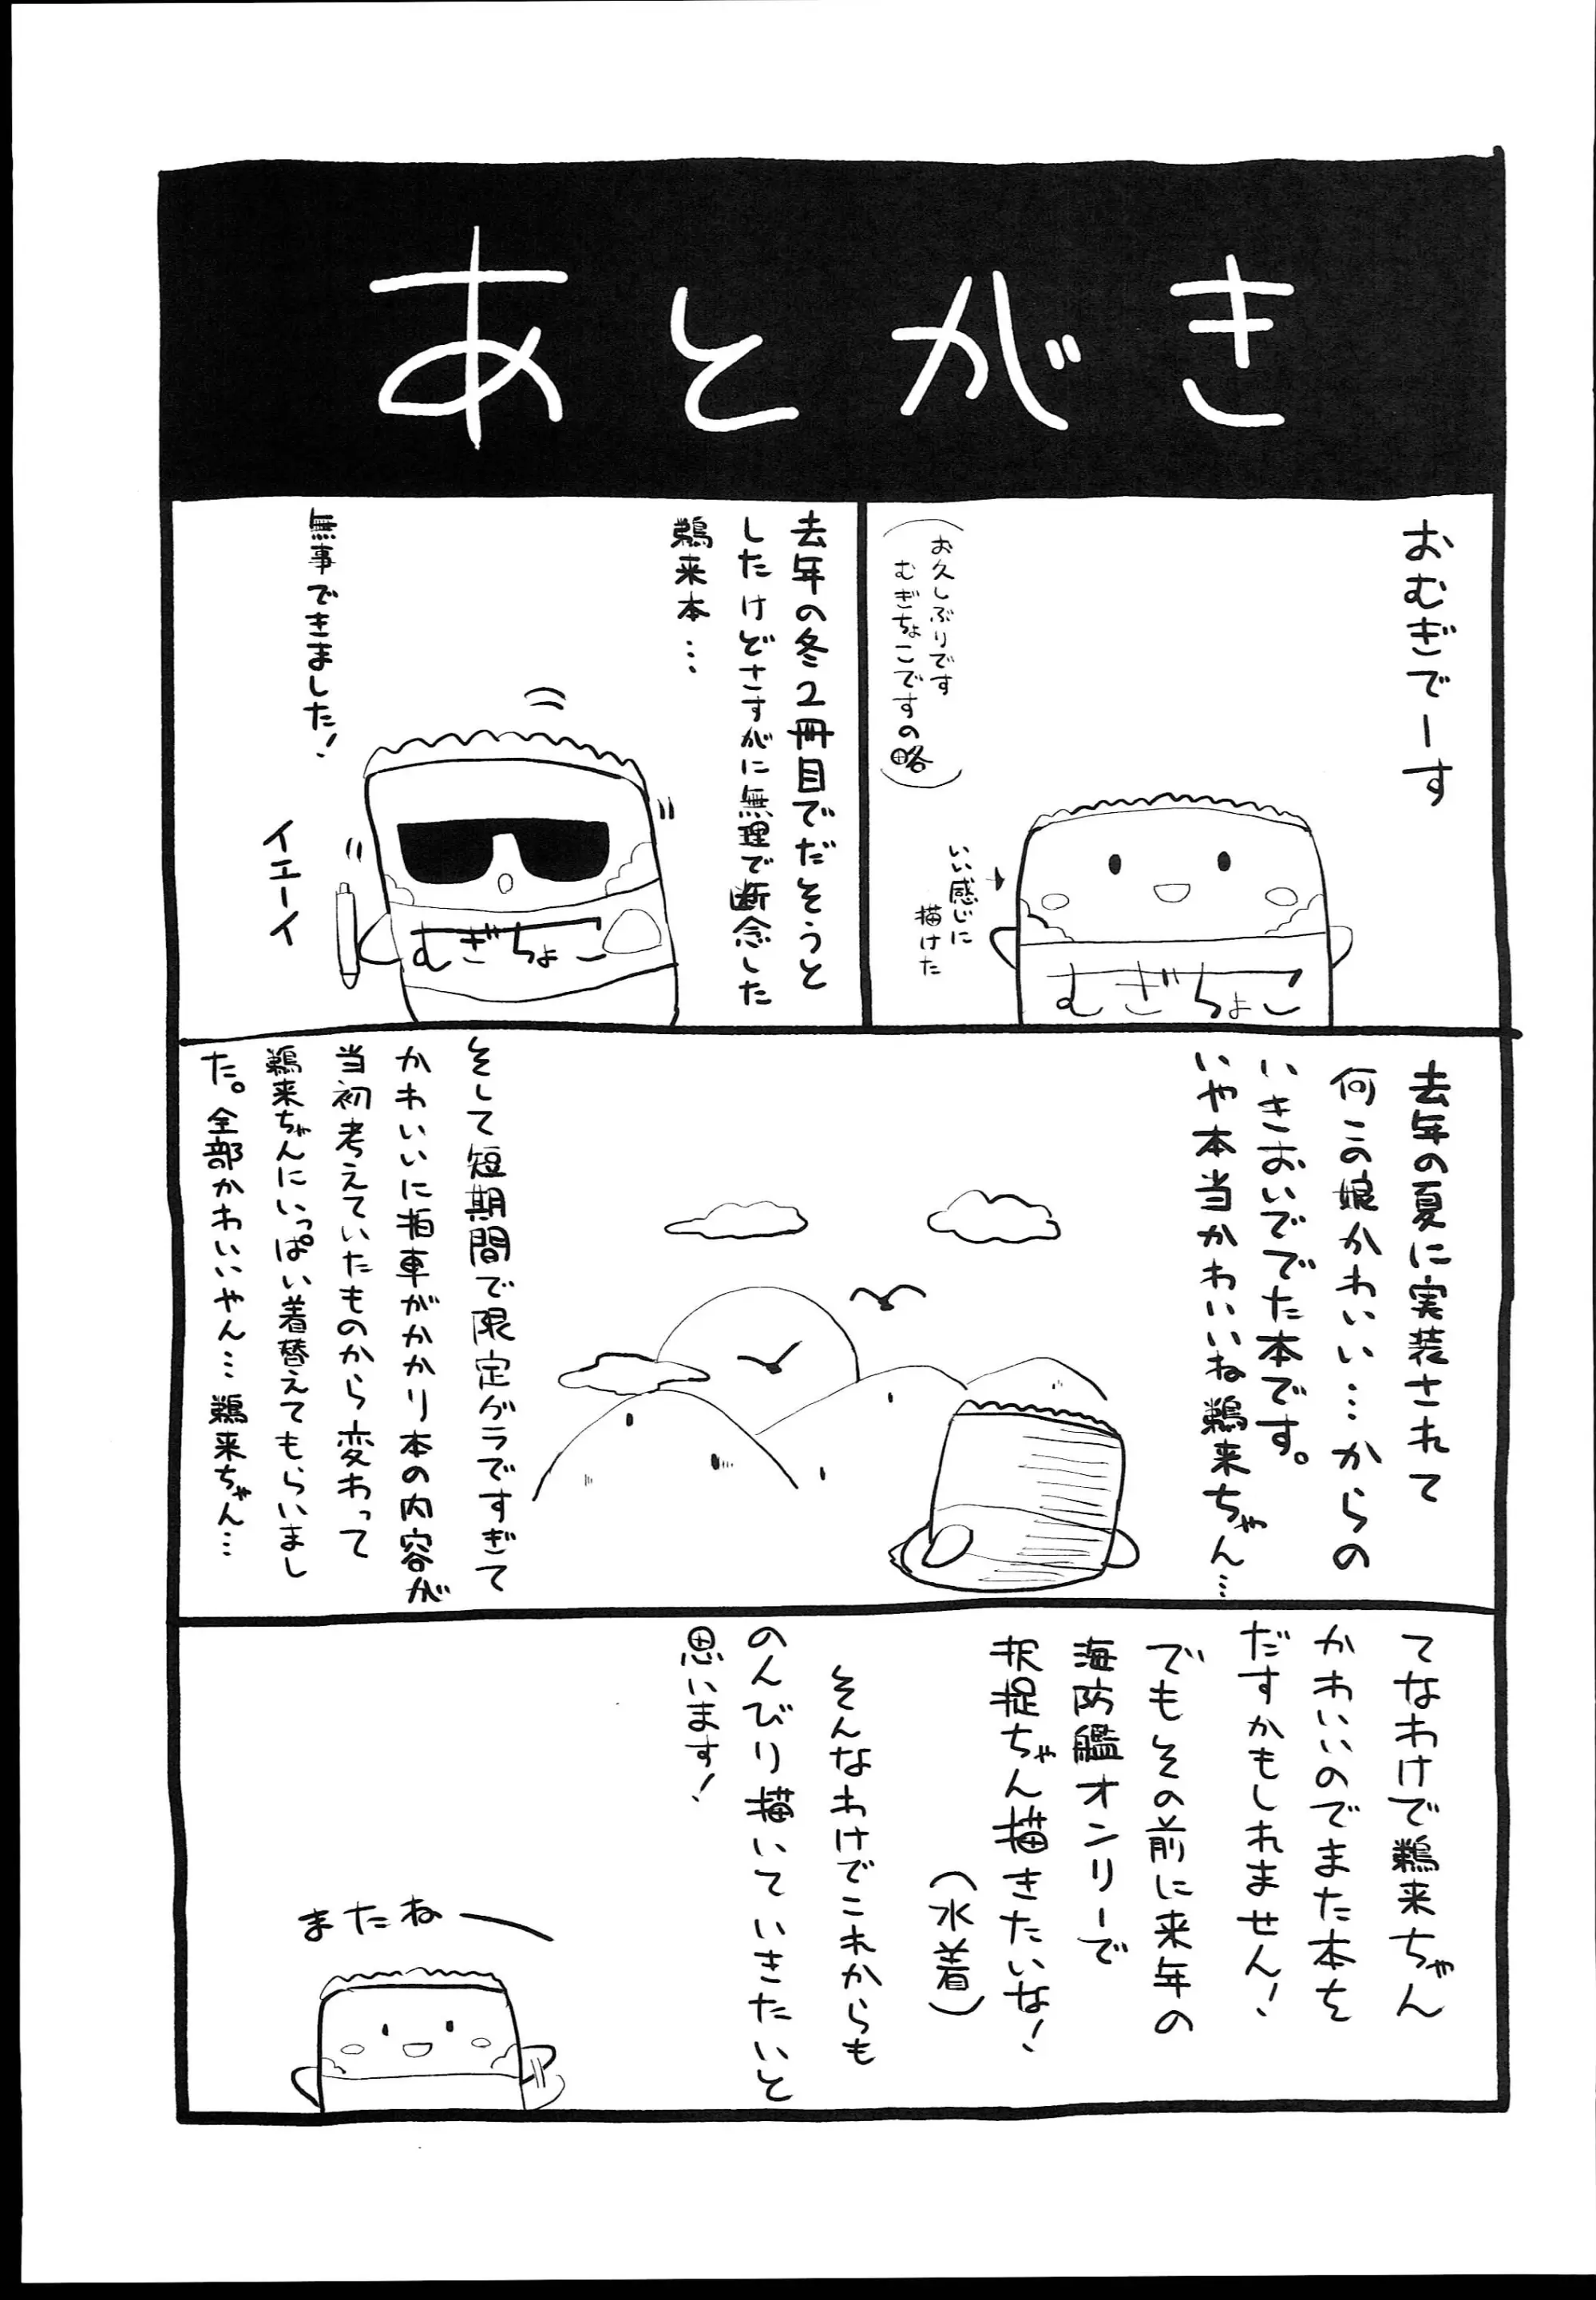 あとがき
おむぎでーす
(お久しぶりです
むぎちょこですの略)
いい感じに
描けた
むぎちょこ
去年の冬2冊目でだそうと
したけどさすがに無理で断念した
鵜来本…
無事できました!
イエーイ
むぎちょこ
去年の夏に実装されて
何この娘かわいい…からの
いきおいででた本です。
いや本当かわいいね鵜来ちゃん…
そして短期間で限定グラですぎて
かわいいに拍車がかかり本の内容が
当初考えていたものから変わって
鵜来ちゃんにいっぱい着替えてもらいまし
た。全部かわいいやん…鵜来ちゃん…
てなわけで鵜来ちゃん
かわいいのでまた本を
だすかもしれません!
でもその前に来年の
海防艦オンリーで
択捉ちゃん描きたいな!
(水着)
そんなわけでこれからも
のんびり描いていきたいと
思います!
またね